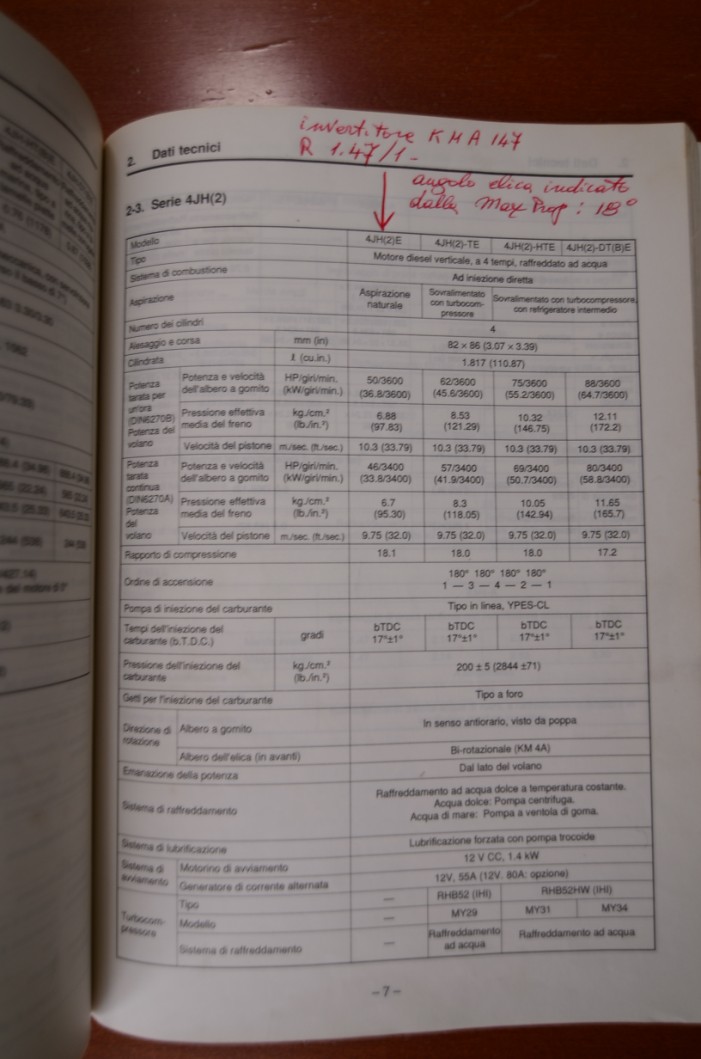 invertitore KMA 147
R 1.47/1-
angolo elica indicato
dalla Max Prop: 18°
2. Dati tecnici
2-3. Serie 4JH(2)
Modello 4JH(2)E 4JH(2)-TE 4JH(2)-HTE 4JH(2)-DT(B)E
Tipo Motore diesel verticale, a 4 tempi, raffreddato ad acqua
Sistema di combustione Ad iniezione diretta
Aspirazione Aspirazione naturale Sovralimentato con turbocom-pressore Sovralimentato con turbocompressore, con refrigeratore intermedio
Numero dei cilindri 4
Alesaggio e corsa mm (in) 82 × 86 (3.07 × 3.39)
Cilindrata ℓ (cu.in.) 1.817 (110.87)
Potenza tarata per un'ora (DIN6270B) Potenza del volano
Potenza e velocità dell'albero a gomito HP/giri/min. (kW/giri/min.) 50/3600 (36.8/3600) 62/3600 (45.6/3600) 75/3600 (55.2/3600) 88/3600 (64.7/3600)
Pressione effettiva media del freno kg./cm.² (lb./in.²) 6.88 (97.83) 8.53 (121.29) 10.32 (146.75) 12.11 (172.2)
Velocità del pistone m./sec. (ft./sec.) 10.3 (33.79) 10.3 (33.79) 10.3 (33.79) 10.3 (33.79)
Potenza tarata continua (DIN6270A) Potenza del volano
Potenza e velocità dell'albero a gomito HP/giri/min. (kW/giri/min.) 46/3400 (33.8/3400) 57/3400 (41.9/3400) 69/3400 (50.7/3400) 80/3400 (58.8/3400)
Pressione effettiva media del freno kg./cm.² (lb./in.²) 6.7 (95.30) 8.3 (118.05) 10.05 (142.94) 11.65 (165.7)
Velocità del pistone m./sec. (ft./sec.) 9.75 (32.0) 9.75 (32.0) 9.75 (32.0) 9.75 (32.0)
Rapporto di compressione 18.1 18.0 18.0 17.2
Ordine di accensione 180° 180° 180° 180°
1 — 3 — 4 — 2 — 1
Pompa di iniezione del carburante Tipo in linea, YPES-CL
Tempi dell'iniezione del carburante (b.T.D.C.) gradi bTDC 17°±1° bTDC 17°±1° bTDC 17°±1° bTDC 17°±1°
Pressione dell'iniezione del carburante kg./cm.² (lb./in.²) 200 ± 5 (2844 ±71)
Getti per l'iniezione del carburante Tipo a foro
Direzione di rotazione Albero a gomito In senso antiorario, visto da poppa
Albero dell'elica (in avanti) Bi-rotazionale (KM 4A)
Emanazione della potenza Dal lato del volano
Sistema di raffreddamento Raffreddamento ad acqua dolce a temperatura costante.
Acqua dolce: Pompa centrifuga.
Acqua di mare: Pompa a ventola di goma.
Sistema di lubrificazione Lubrificazione forzata con pompa trocoide
Sistema di avviamento Motorino di avviamento 12 V CC, 1.4 kW
Generatore di corrente alternata 12V, 55A (12V. 80A: opzione)
Turbocom-pressore Tipo — RHB52 (IHI) RHB52HW (IHI)
Modello — MY29 MY31 MY34
Sistema di raffreddamento — Raffreddamento ad acqua Raffreddamento ad acqua
–7–